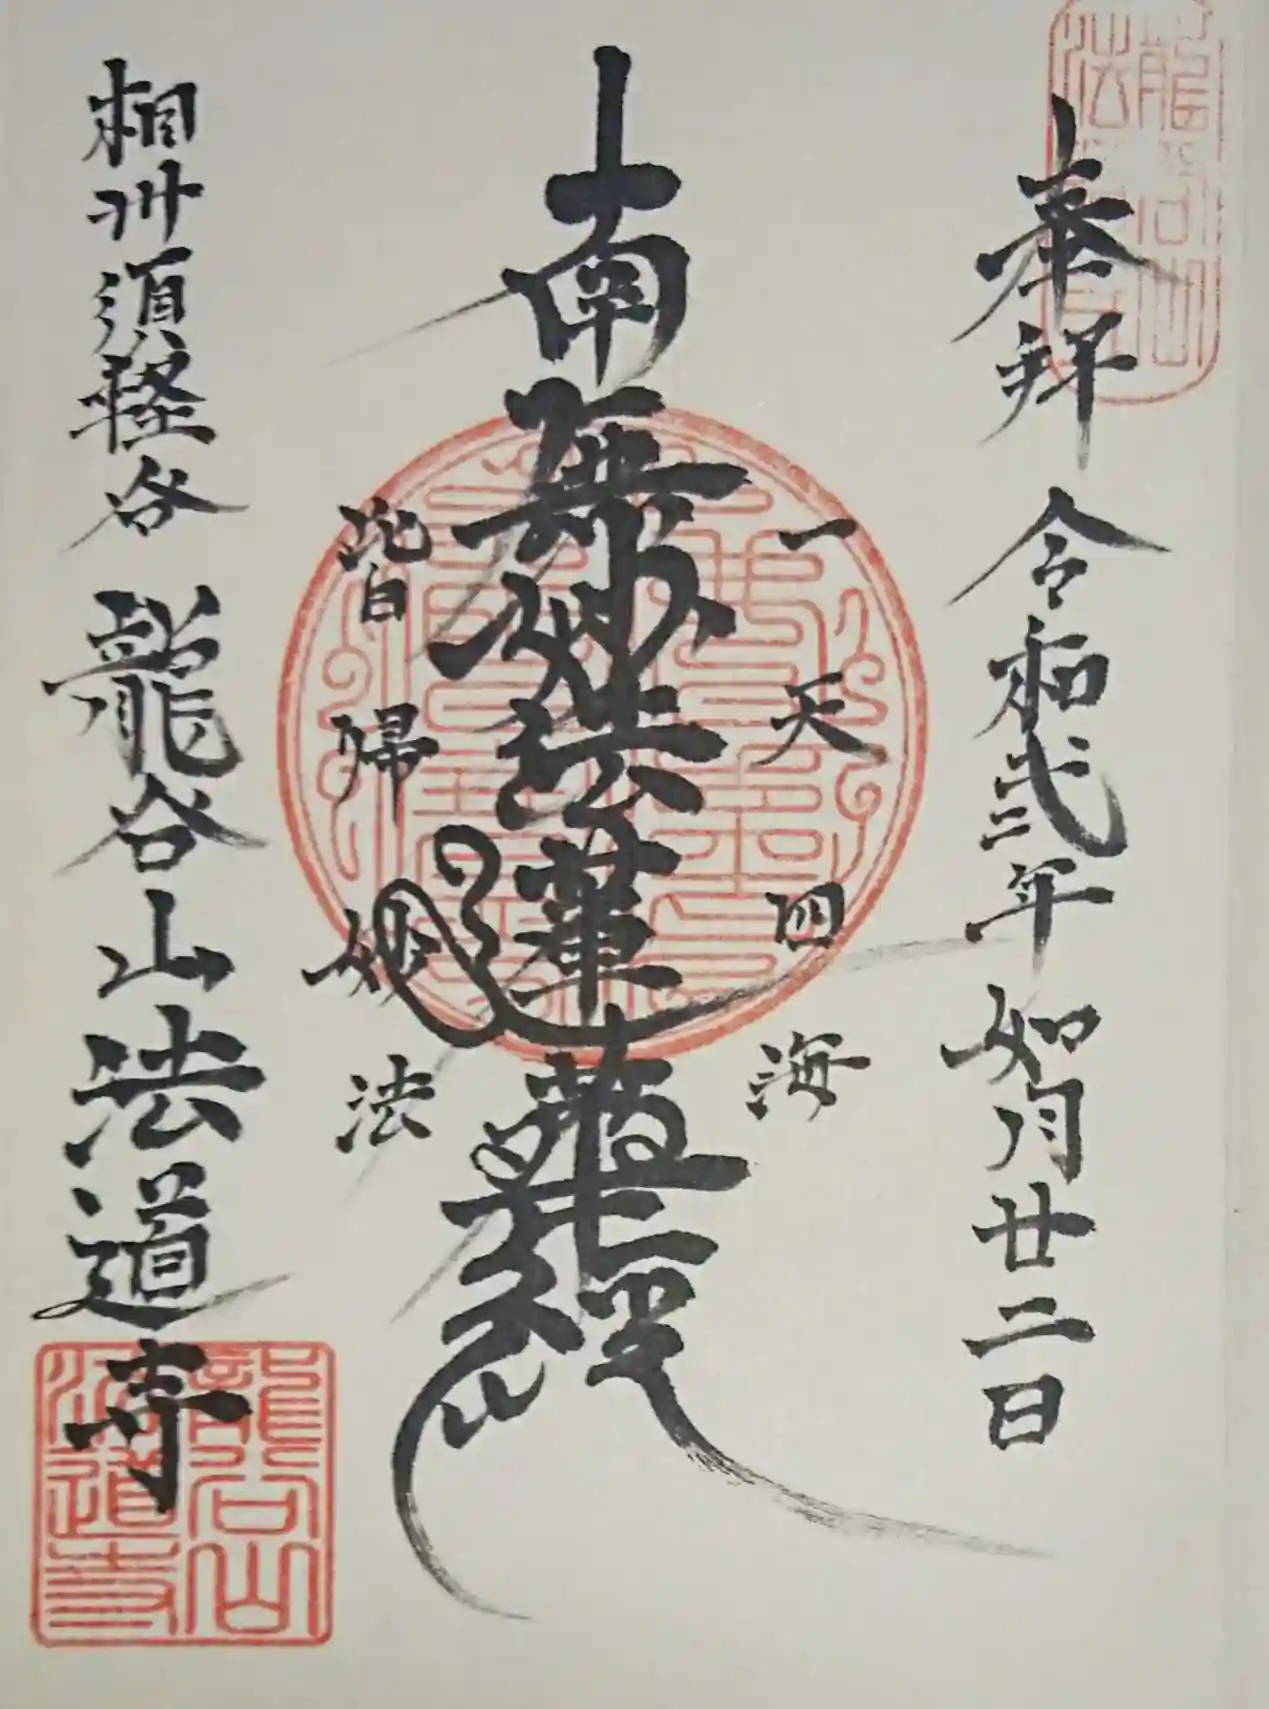 奉拝 令和弐年 如月廿二日
一天四海
南無妙法蓮華経
皆帰妙法
相州須軽谷 龍谷山法道寺
龍谷山
法道寺